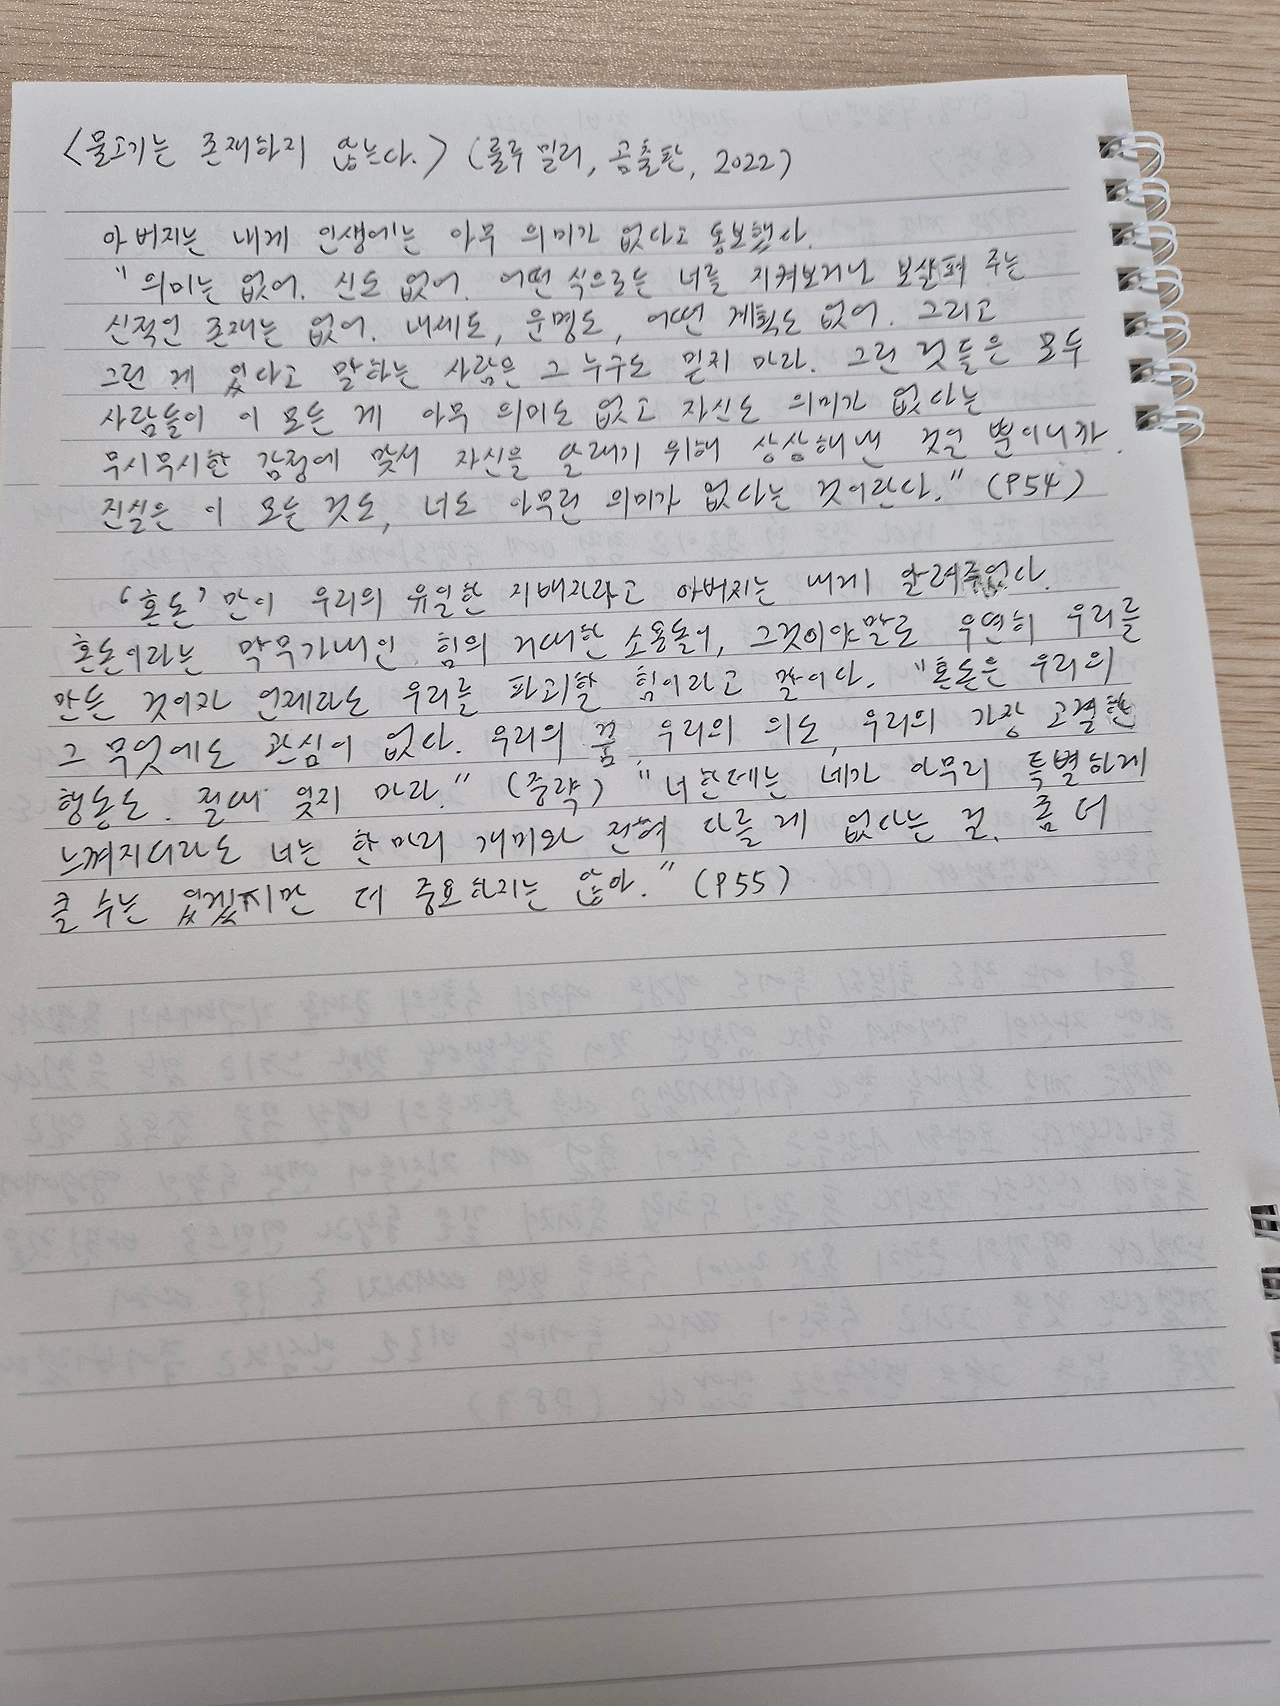 <물고기는 존재하지 않는다.> (룰루 밀러, 곰출판, 2022)
아버지는 내게 인생에는 아무 의미가 없다고 통보했다.
"의미는 없어. 신도 없어. 어떤 식으로든 너를 지켜보거나 보살펴 주는
신적인 존재는 없어. 내세도, 운명도, 어떤 계획도 없어. 그리고
그런 게 있다고 말하는 사람은 그 누구도 믿지 마라. 그런 것들은 모두
사람들이 이 모든 게 아무 의미도 없고 자신도 의미가 없다는
무시무시한 감정에 맞서 자신을 달래기 위해 상상해낸 것일 뿐이니까.
진실은 이 모든 것도, 너도 아무런 의미가 없다는 것이란다." (P54)
'혼돈'만이 우리의 유일한 지배자라고 아버지는 내게 알려주었다.
혼돈이라는 막무가내인 힘의 거대한 소용돌이, 그것이야말로 우연히 우리를
만든 것이자 언제라도 우리를 파괴할 힘이라고 말이다. "혼돈은 우리의
그 무엇에도 관심이 없다. 우리의 꿈, 우리의 의도, 우리의 가장 고결한
행동도. 절대 잊지 마라." (중략) "너한데는 네가 아무리 특별하게
느껴지더라도 너는 한 마리 개미와 전혀 다를 게 없다는 걸. 좀 더
클 수는 있겠지만 더 중요하지는 않아." (P55)